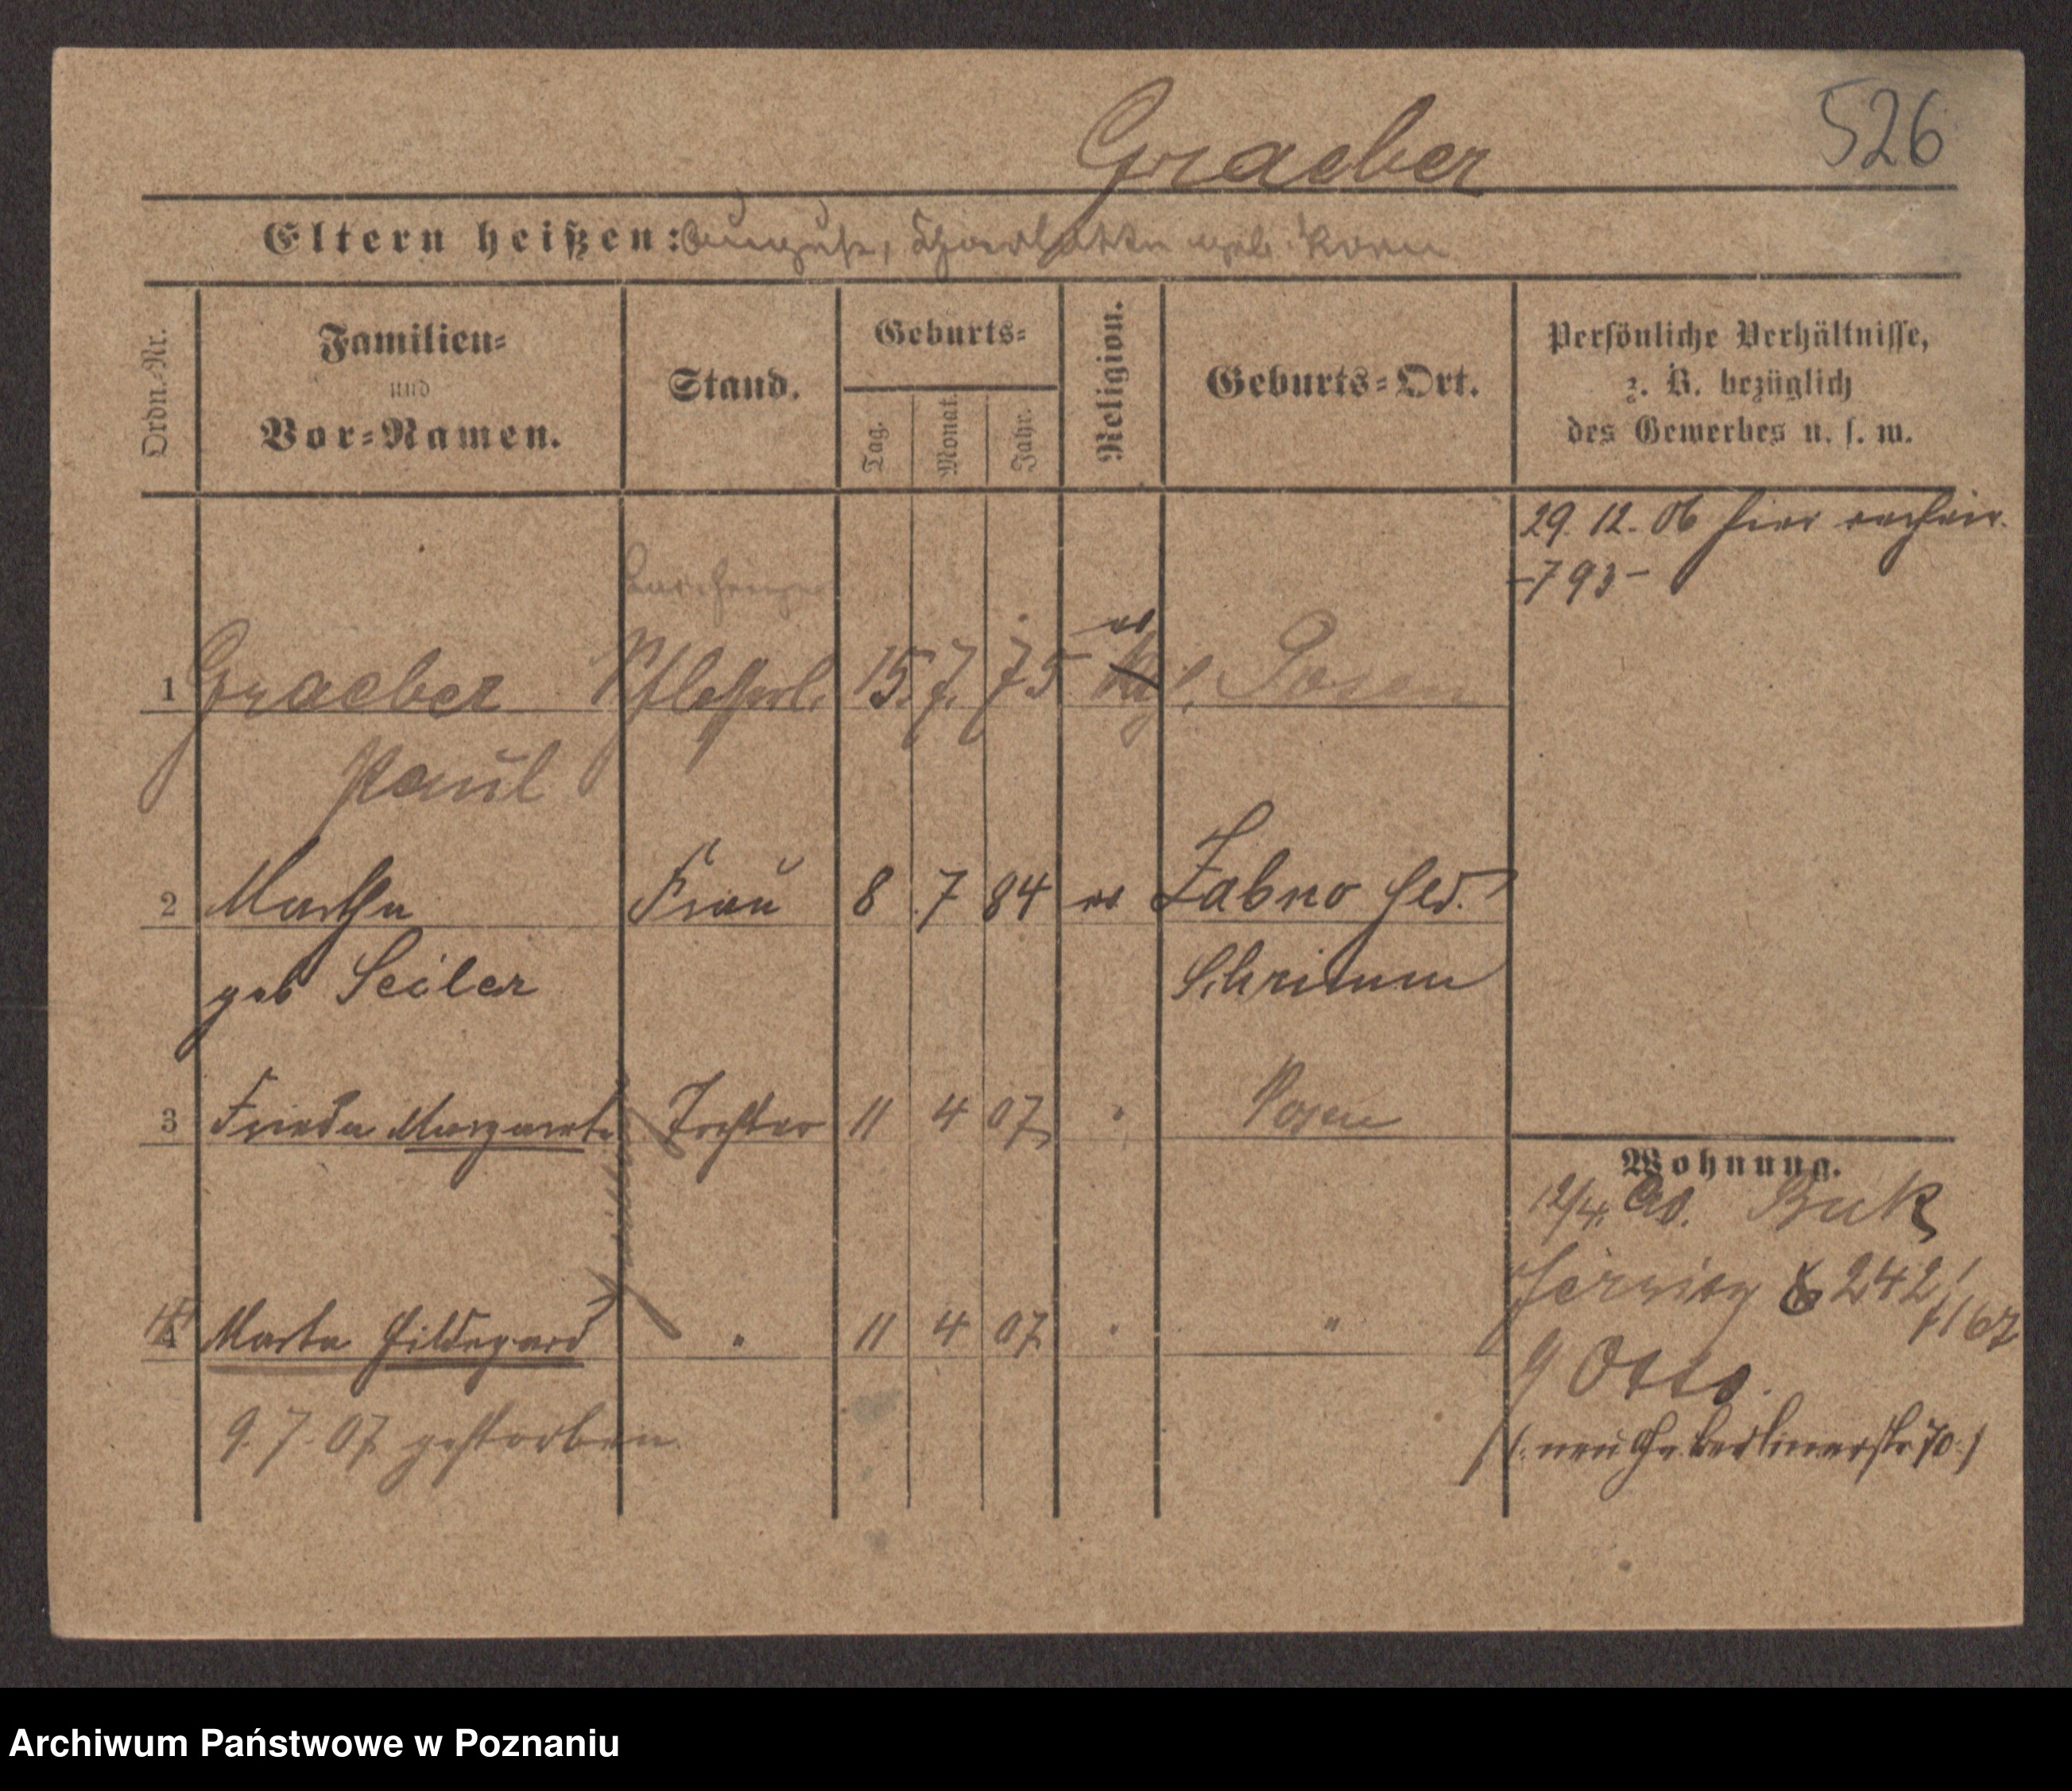 526
Graeber
Eltern heißen: August, Charlotte geb. Korn
Ordn.-Nr.
Familien-
und
Vor-Namen.
Stand.
Geburts-
Tag.
Monat.
Jahr.
Religion.
Geburts-Ort.
Persönliche Verhältnisse,
z. B. bezüglich
des Gewerbes u. s. w.
29. 12. 06 hier
-793-
1 Graeber 15. 7. 75 ev Posen
Paul
2 Martha Frau 8 7 84 ev Zabno
geb Seiler Schrimm
3 Frieda Margarete Tochter 11 4 07 " Posen
Wohnung.
12/4. Buk
242
4 Marta Hildegard " 11 4 07 " "
9 Otto.
9. 7. 07 gestorben
(: neu Gr. Berlinerstr 70 :)
Archiwum Państwowe w Poznaniu